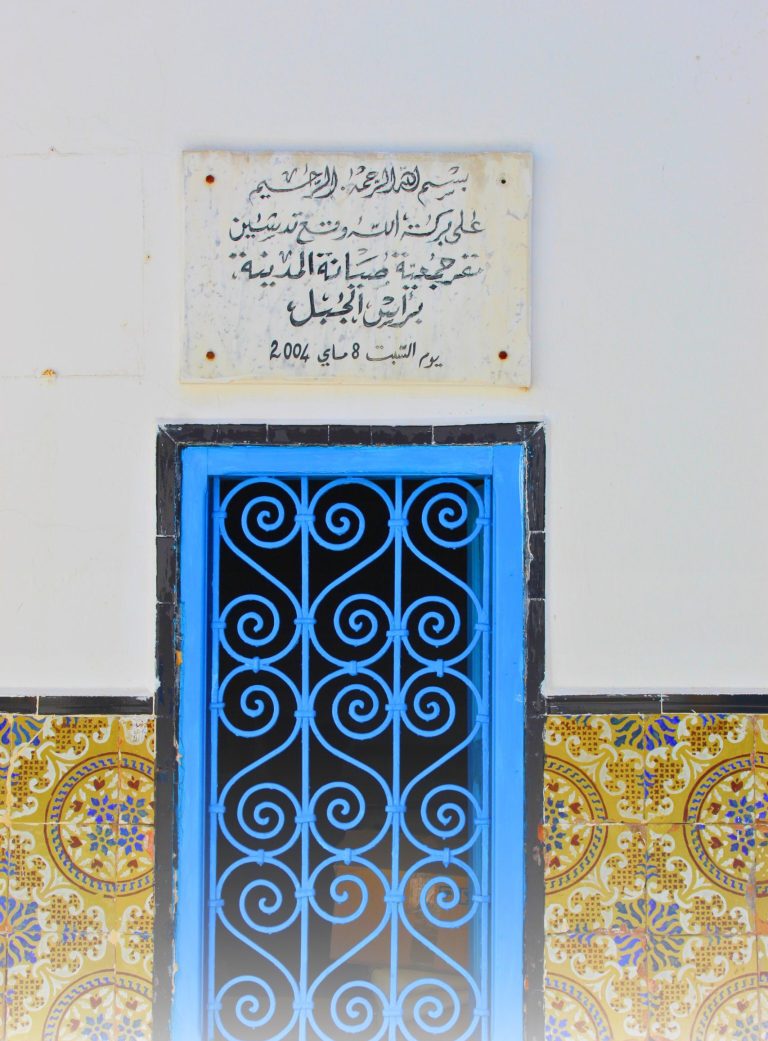 بسم الله الرحمن الرحيم
على بركة الله وقع تدشين
مقر جمعية صيانة المدينة
برأس الجبل
يوم السّبت 8 ماي 2004